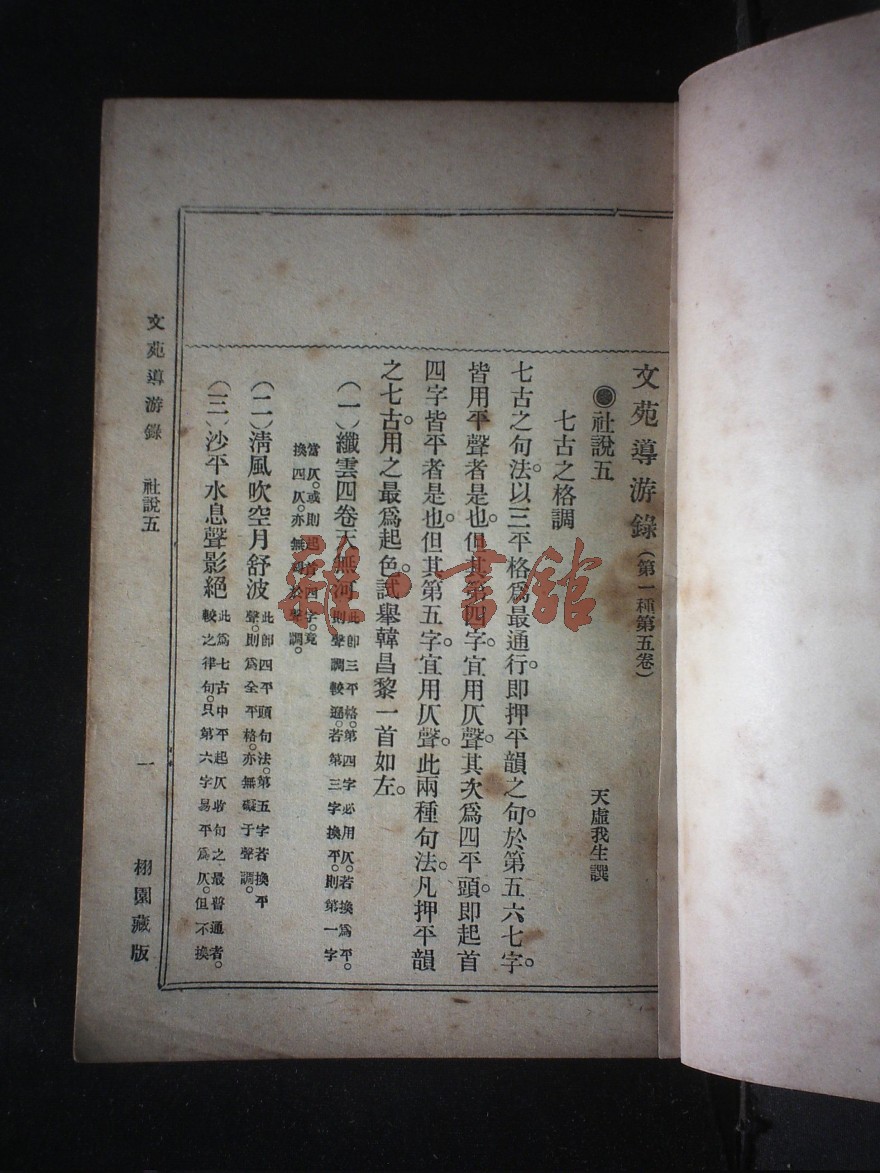 文苑導游錄（第一種第五卷）
社說五
天虛我生譔
七古之格調
七古之句法。以三平格爲最通行。即押平韻之句。於第五六七字。
皆用平聲者是也。但其第四字宜用仄聲。其次爲四平頭。即起首
四字皆平者是也。但其第五字宜用仄聲。此兩種句法。凡押平韻
之七古。用之最爲起色。試舉韓昌黎一首如左。
（一）纖雲四卷天無河
此即三平格。第四字必用仄。若換爲平。
則聲調較遜。若第三字換平。則第一字
當仄。或則起首四字。竟
換四仄。亦無礙於聲調。
（二）淸風吹空月舒波
此即四平頭句法。第五字若換平
聲。則爲全平格。亦無礙于聲調。
（三）沙平水息聲影絕
此爲七古中平起仄收句之最普通者。
較之律句。只第六字易平爲仄。但不換
文苑導游錄 社說五 一 栩園藏版
雜·書館